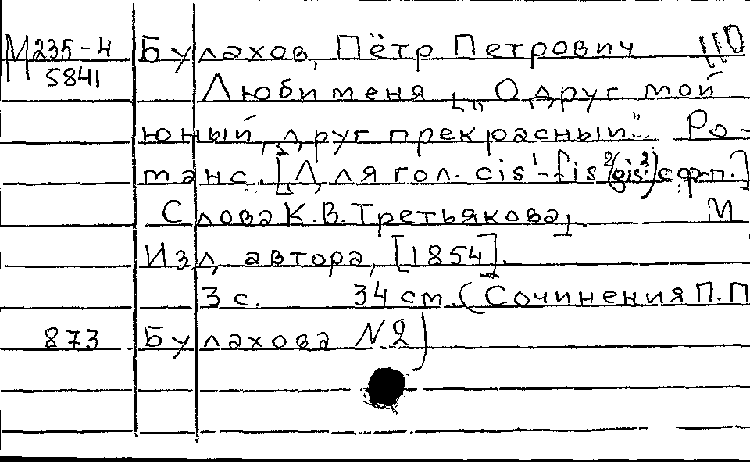 М 235-4 Булахов, Пётр Петрович
5841 Люби меня „О, друг мой
юный, друг прекрасный". Ро-
манс. [Для гол. cis¹-fis²(gis²) с фп.]
Слова К.В. Третьякова, М
Изд. автора, [1854].
3 с. 34 см. (Сочинения П.П
873 Булахова № 2)